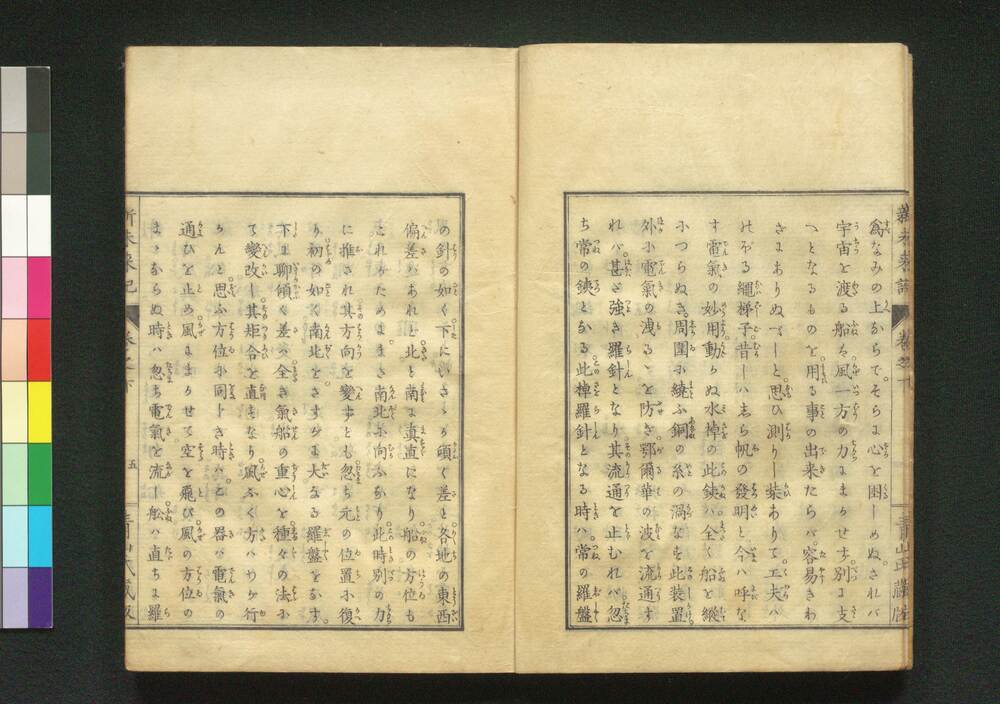 新未来記 巻之下 青山氏蔵版
禽なみの上からでそらに心を困しめぬされバ
宇宙を渡る船を風一方の力にまかせず別に支
へとなるものを用る事の出来たらバ容易きわ
ざにありぬべしと思ひ測りし業ありて工夫ハ
のぼる繩梯子昔しハしら帆の發明と今ハ呼な
す電氣の妙用動かぬ水棹の此鋏ハ全く船を縱
につらぬき周圍に繞ふ銅の糸の渦なを此装置
外に電氣の洩るゝを防ぎ鄂爾華の波を流通す
れバ甚ざ強き羅針となり其流通を止むれバ忽
ち常の鋏とかる此棹羅針となる時ハ常の羅盤
の針の如く下にいさゝか頭く差と各地の東西
偏差があれど北と南に真直になり船の方位も
これがためにまき南北に向ふなり此時別の力
に推され其方向を變ずとも忽ち元の位置に復
り初の如く南北をさすがに大なる羅盤をなす
下に聊傾く差ハ全き氣船の重心を種々の法に
て變改し其矩合を直すなり風ふく方ハわが行
かんと思ふ方位に同じき時ハこの器バ電氣の
通ひを止め風にまかせて空を飛び風の方位の
まゝならぬ時ハ忽ち電氣を流し舩ハ直ちに羅
新未来記 巻之下 五 青山氏蔵版